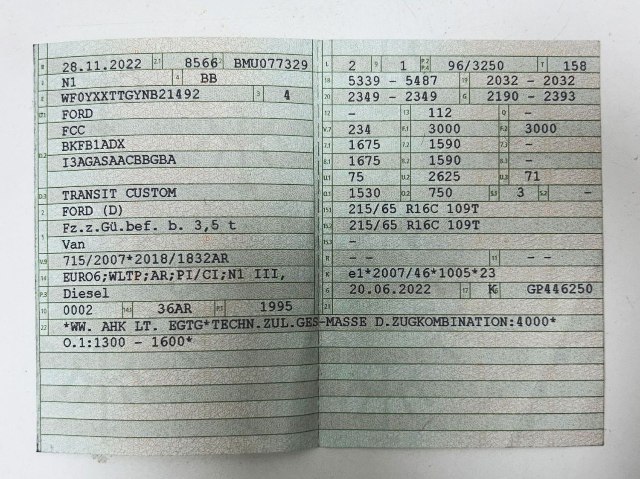 B 28.11.2022 2.1 8566 BMU077329
N1 4 BB
E WF0YXXTTGYNB21492 3 4
D.1 FORD
FCC
D.2 BKFB1ADX
I3AGASAACBBGBA
D.3 TRANSIT CUSTOM
2 FORD (D)
Fz.z.Gü.bef. b. 3,5 t
Van
V.9 715/2007*2018/1832AR
14 EURO6;WLTP;AR;PI/CI;N1 III,
P.3 Diesel
10 0002 14.1 36AR P.1 1995
22 *WW. AHK LT. EGTG*TECHN.ZUL.GES-MASSE D.ZUGKOMBINATION:4000*
O.1:1300 - 1600*
L 2 9 1 P.2 P.4 96/3250 T 158
18 5339 - 5487 19 2032 - 2032
20 2349 - 2349 G 2190 - 2393
12 - 13 112 Q -
V.7 234 F.1 3000 F.2 3000
7.1 1675 7.2 1590 7.3 -
8.1 1675 8.2 1590 8.3 -
U.1 75 U.2 2625 U.3 71
O.1 1530 O.2 750 S.1 3 S.2 -
15.1 215/65 R16C 109T
15.2 215/65 R16C 109T
15.3 -
R -- 11 --
K e1*2007/46*1005*23
6 20.06.2022 17 K 16 GP446250
21